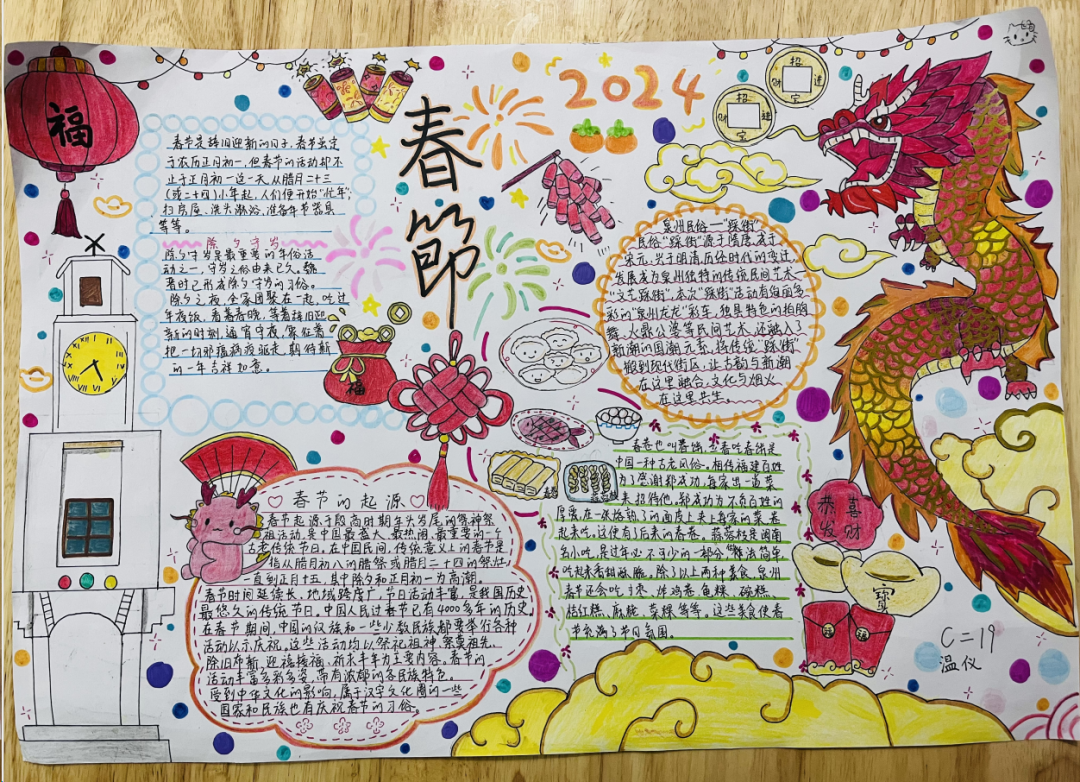 福
春節
2024
招
财
进
宝
招
财
进
宝
春节是辞旧迎新的日子,春节虽定
于农历正月初一,但春节的活动却不
止于正月初一这一天.从腊月二十三
(或二十四)小年起,人们便开始"忙年":
扫房屋、洗头沐浴、准备年节器具
等等。
除夕守岁
除夕守岁是最重要的年俗活
动之一,守岁之俗由来已久.魏
晋时已形成除夕守岁的习俗。
除夕之夜,全家团聚在一起,吃过
年夜饭,看着春晚,等着辞旧迎
新的时刻,通宵守夜,象征着
把一切邪瘟病疫驱走,期待新
的一年吉祥如意。
福
泉州民俗——"踩街"
民俗"踩街"源于隋唐,盛于
宋元,兴于明清,历经时代的变迁
发展成为泉州独特的传统民间艺术
"文艺踩街",本次"踩街"活动有绚丽多
彩的"泉州龙龙"彩车,独具特色的拍胸
舞、火鼎公婆等民间艺术,还融入了
新潮的国潮元素,将传统"踩街"
搬到现代街区,让古韵与新潮
在这里融合,文化与烟火
在这里共生。
春节的起源
春节起源于殷商时期年头岁尾的祭神祭
祖活动,是中国最盛大、最热闹、最重要的一个
古老传统节日。在中国民间,传统意义上的春节是
指从腊月初八的腊祭或腊月二十四的祭灶,
一直到正月十五,其中除夕和正月初一为高潮。
春节时间延续长、地域跨度广、节日活动丰富,是我国历史
最悠久的传统节日。中国人民过春节已有4000多年的历史,
在春节期间,中国的汉族和一些少数民族都要举行各种
活动以示庆祝,这些活动均以祭祀祖神、祭奠祖先、
除旧布新、迎福接福、祈求丰年为主要内容。春节的
活动丰富多彩多姿,带有浓郁的各民族特色。
受到中华文化的影响,属于汉字文化圈的一些
国家和民族也有庆祝春节的习俗。
春卷也叫春饼,立春吃春饼是
中国一种古老风俗。相传福建百姓
为了感谢郑成功,每家出一道菜
来招待他,郑成功为不负百姓的
厚爱,在一张烙熟了的面皮上夹上每家的菜,卷
起来吃,这便有了后来的春卷。蒜蓉枝是闽南
名小吃,是过年必不可少的一部分,做法简单
吃起来香甜酥脆。除了以上两种美食,泉州
春节还会吃丁枣、炸鸡卷、鱼粿、碗糕
桔红糕、麻粩、菜粿等等。这些美食使春
节充满了节日氛围。
恭喜
发财
寶
C二19
温仪